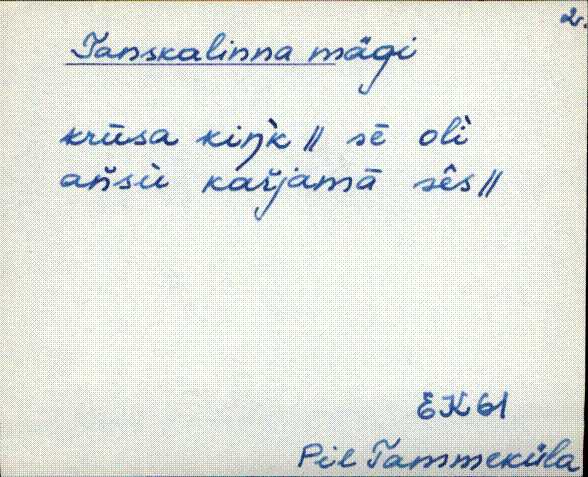 2.
Tanskalinna mägi
krūsa kiŋ̀k // sē olì
añsù kařjamā sês //
EK 61
Pil Tammeküla